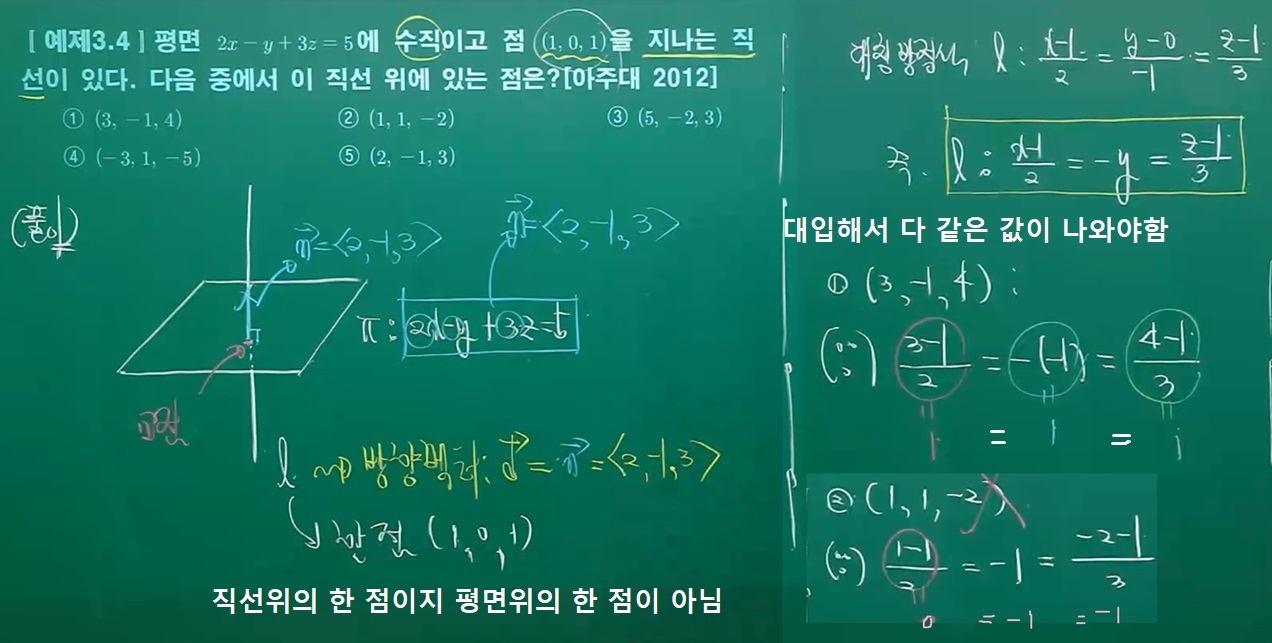 [ 예제3.4 ] 평면 2x − y + 3z = 5에 수직이고 점 (1, 0, 1)을 지나는 직
선이 있다. 다음 중에서 이 직선 위에 있는 점은?[아주대 2012]
① (3, −1, 4) ② (1, 1, −2) ③ (5, −2, 3)
④ (−3, 1, −5) ⑤ (2, −1, 3)
(풀이)
n⃗=<2,-1,3> n⃗=<2,-1,3>
π : 2x-y+3z=5
교점
l ⇝ 방향벡터: d⃗ = n⃗ = <2,-1,3>
한 점 (1,0,1)
직선위의 한 점이지 평면위의 한 점이 아님
대칭방정식 l : (x-1)/2 = (y-0)/-1 = (z-1)/3
즉. l : (x-1)/2 = -y = (z-1)/3
대입해서 다 같은 값이 나와야함
① (3, -1, 4) :
(∵) (3-1)/2 = -(-1) = (4-1)/3
1 = 1 = 1
② (1, 1, -2)
(∵) (1-1)/2 = -1 = (-2-1)/3
0 = -1 = -1